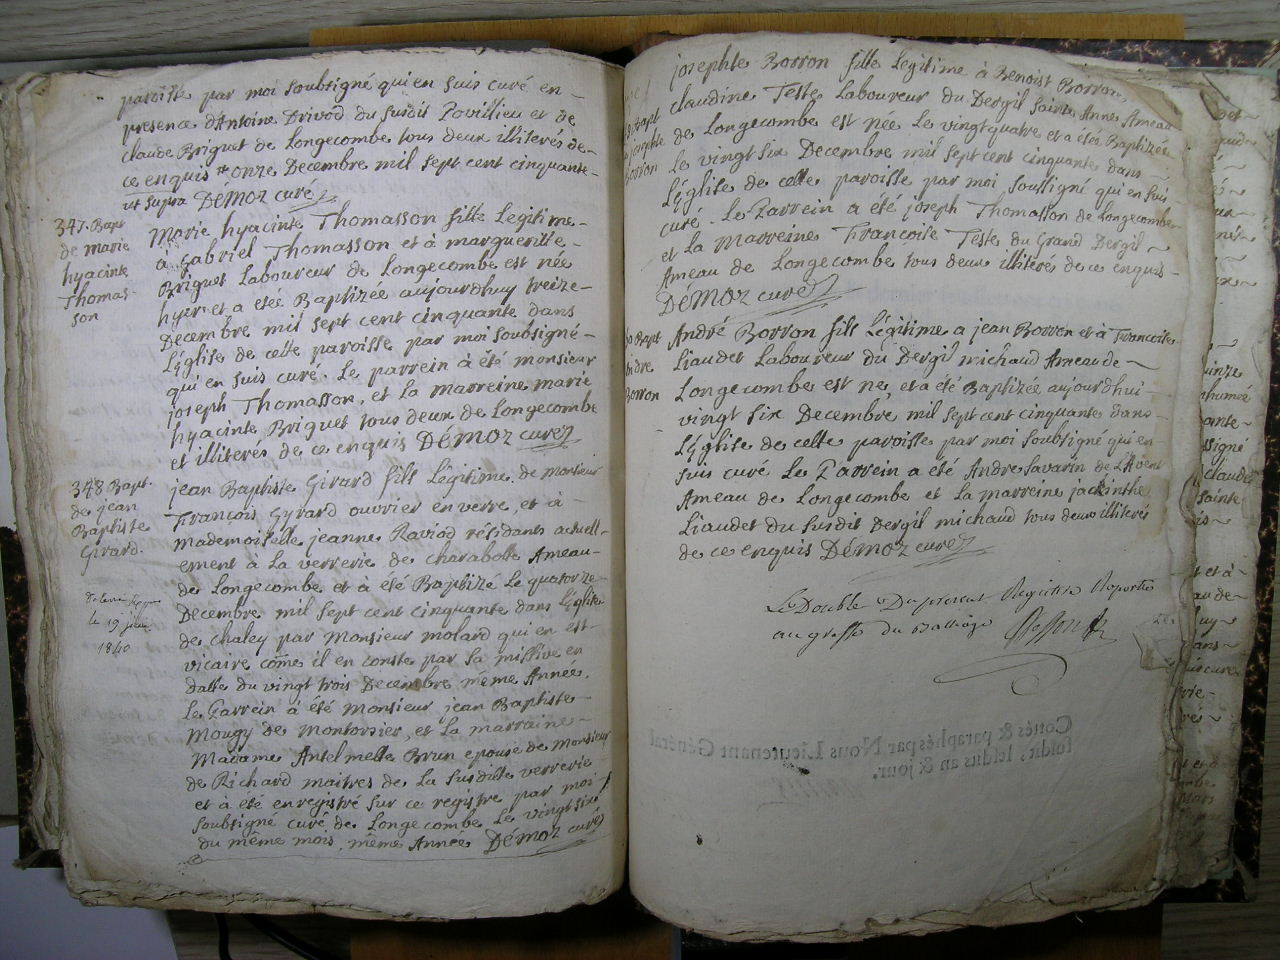 paroisse par moi soubsigné qui en suis curé en-
presence d'Antoine Drivod du susdit Povillieu et de
claude Briguet de Longecombe tous deux illiterés de-
ce enquis onze Decembre mil sept cent cinquante-
ut supra DÉMOZ curé
347. Bapt
de marie
hyacinte
Thomas-
son
Marie hyacinte Thomasson fille Legitime-
à Gabriel Thomasson et à margueritte-
Briguet Laboureur de Longecombe est née
hyer et a etés Baptizée aujourdhuy treize-
Decembre mil sept cent cinquante dans
L'église de cette paroisse par moi soubsigné-
qui en suis curé. Le parrein à été monsieur
joseph Thomasson, et la marreine marie
hyacinte Briguet tous deux de Longecombe
et illiterés de ce enquis DÉMOZ curé
348 Bapt.
de jean
Baptiste
Girard.
jean Baptiste Girard fils Légitime de monsieur
François Gyrard ouvrier en verre, et à-
mademoiselle jeanne Raviod résidants actuell-
ement à la verrerie de charabotte Ameau-
de Longecombe et à été Baptizé Le quatorze-
Decembre mil sept cent cinquante dans L'église
de chaley par monsieur molard qui en est-
vicaire côme il en conste par sa missive en
datte du vingt trois Decembre même Année.
Le Parrein à été monsieur jean Baptiste-
Mougy de montoisier, et La marraine-
Madame Antelmette Brun epouse de monsieur
de Richard maitres de La susditte verrerie-
et à été enregistré sur ce registre par moi
soubsigné curé de Longecombe Le vingt six
du même mois, même Année DÉMOZ curé
le 19 juin
1840
josephte Borron fille Legitime à Benoist Borron,
claudine Teste Laboureur du Dergil sainte Anne, Ameau
de Longecombe est née Le vingtquatre et a étés Baptizée
Le vingt six Decembre mil sept cent cinquante dans-
L'église de cette paroisse par moi soussigné qui en suis-
curé. Le Parrein a été joseph Thomasson de Longecombe
et La Marreine Françoise Teste du Grand Dergil-
Ameau de Longecombe tous deux illiterés de ce enquis-
DÉMOZ curé
Bapt
josephte
Borron
Bapt
Borron
André Borron fils Légitime a jean Borron et à Francoise
Liaudet Laboureur du Dergil michaud Ameau de-
Longecombe est né, et a été Baptizée aujourdhui-
vingt six Decembre, mil sept cent cinquante dans-
L'église de cette paroisse par moi soubsigné qui en-
suis curé Le Parrein a été Andre Savarin de L'Avent
Ameau de Longecombe et La marreine jackinthe
Liaudet du susdit Dergil michaud tous deux illiterés
de ce enquis DÉMOZ curé
Le Double Du present Registre Raporté
au greffe du Balliage
Cottés & paraphés par Nous Lieutenant Général
susdit, lesdits an & jour.